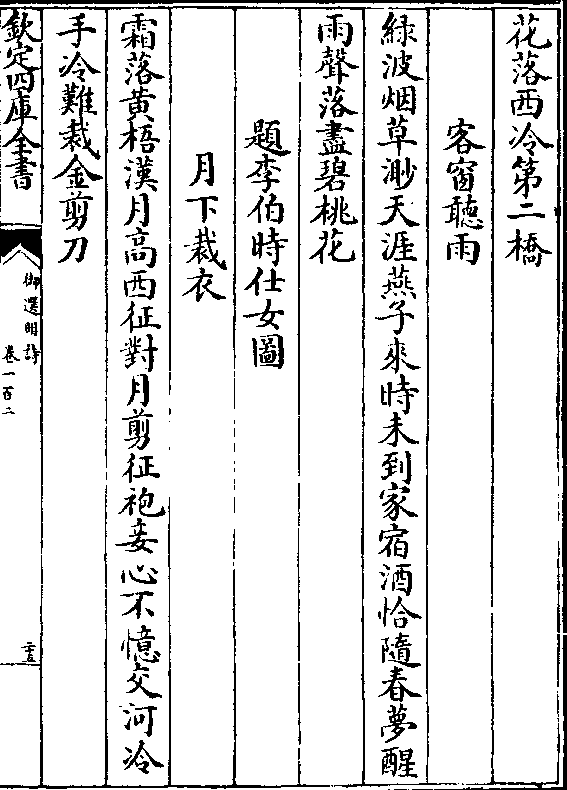 花落西冷第二橋
客窗聽雨
緑波烟草渺天涯燕子來時未到家宿酒恰隨春夢醒
雨聲落盡碧桃花
題李伯時仕女圖
月下裁衣
霜落黄梧漢月高西征對月剪征袍妾心不憶交河冷
手冷難裁金剪刀
欽定四庫全書
御選明詩
卷一百二
二十五